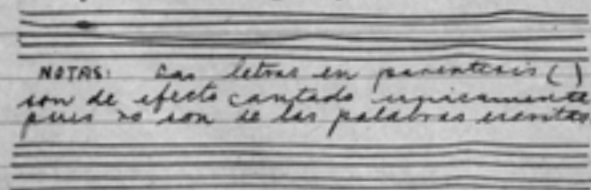 NOTAS: Las letras en parentesis ( )
son de efecto cantado unicamente
pues no son de las palabras escritas